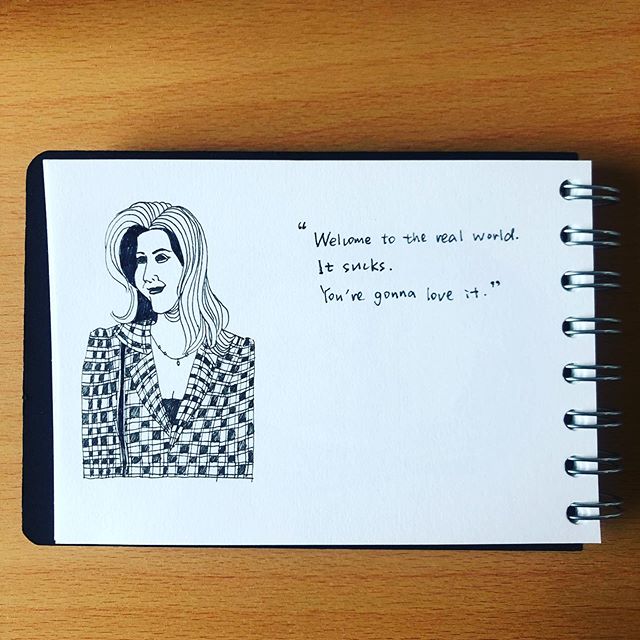 "Welcome to the real world.
It sucks.
You're gonna love it."